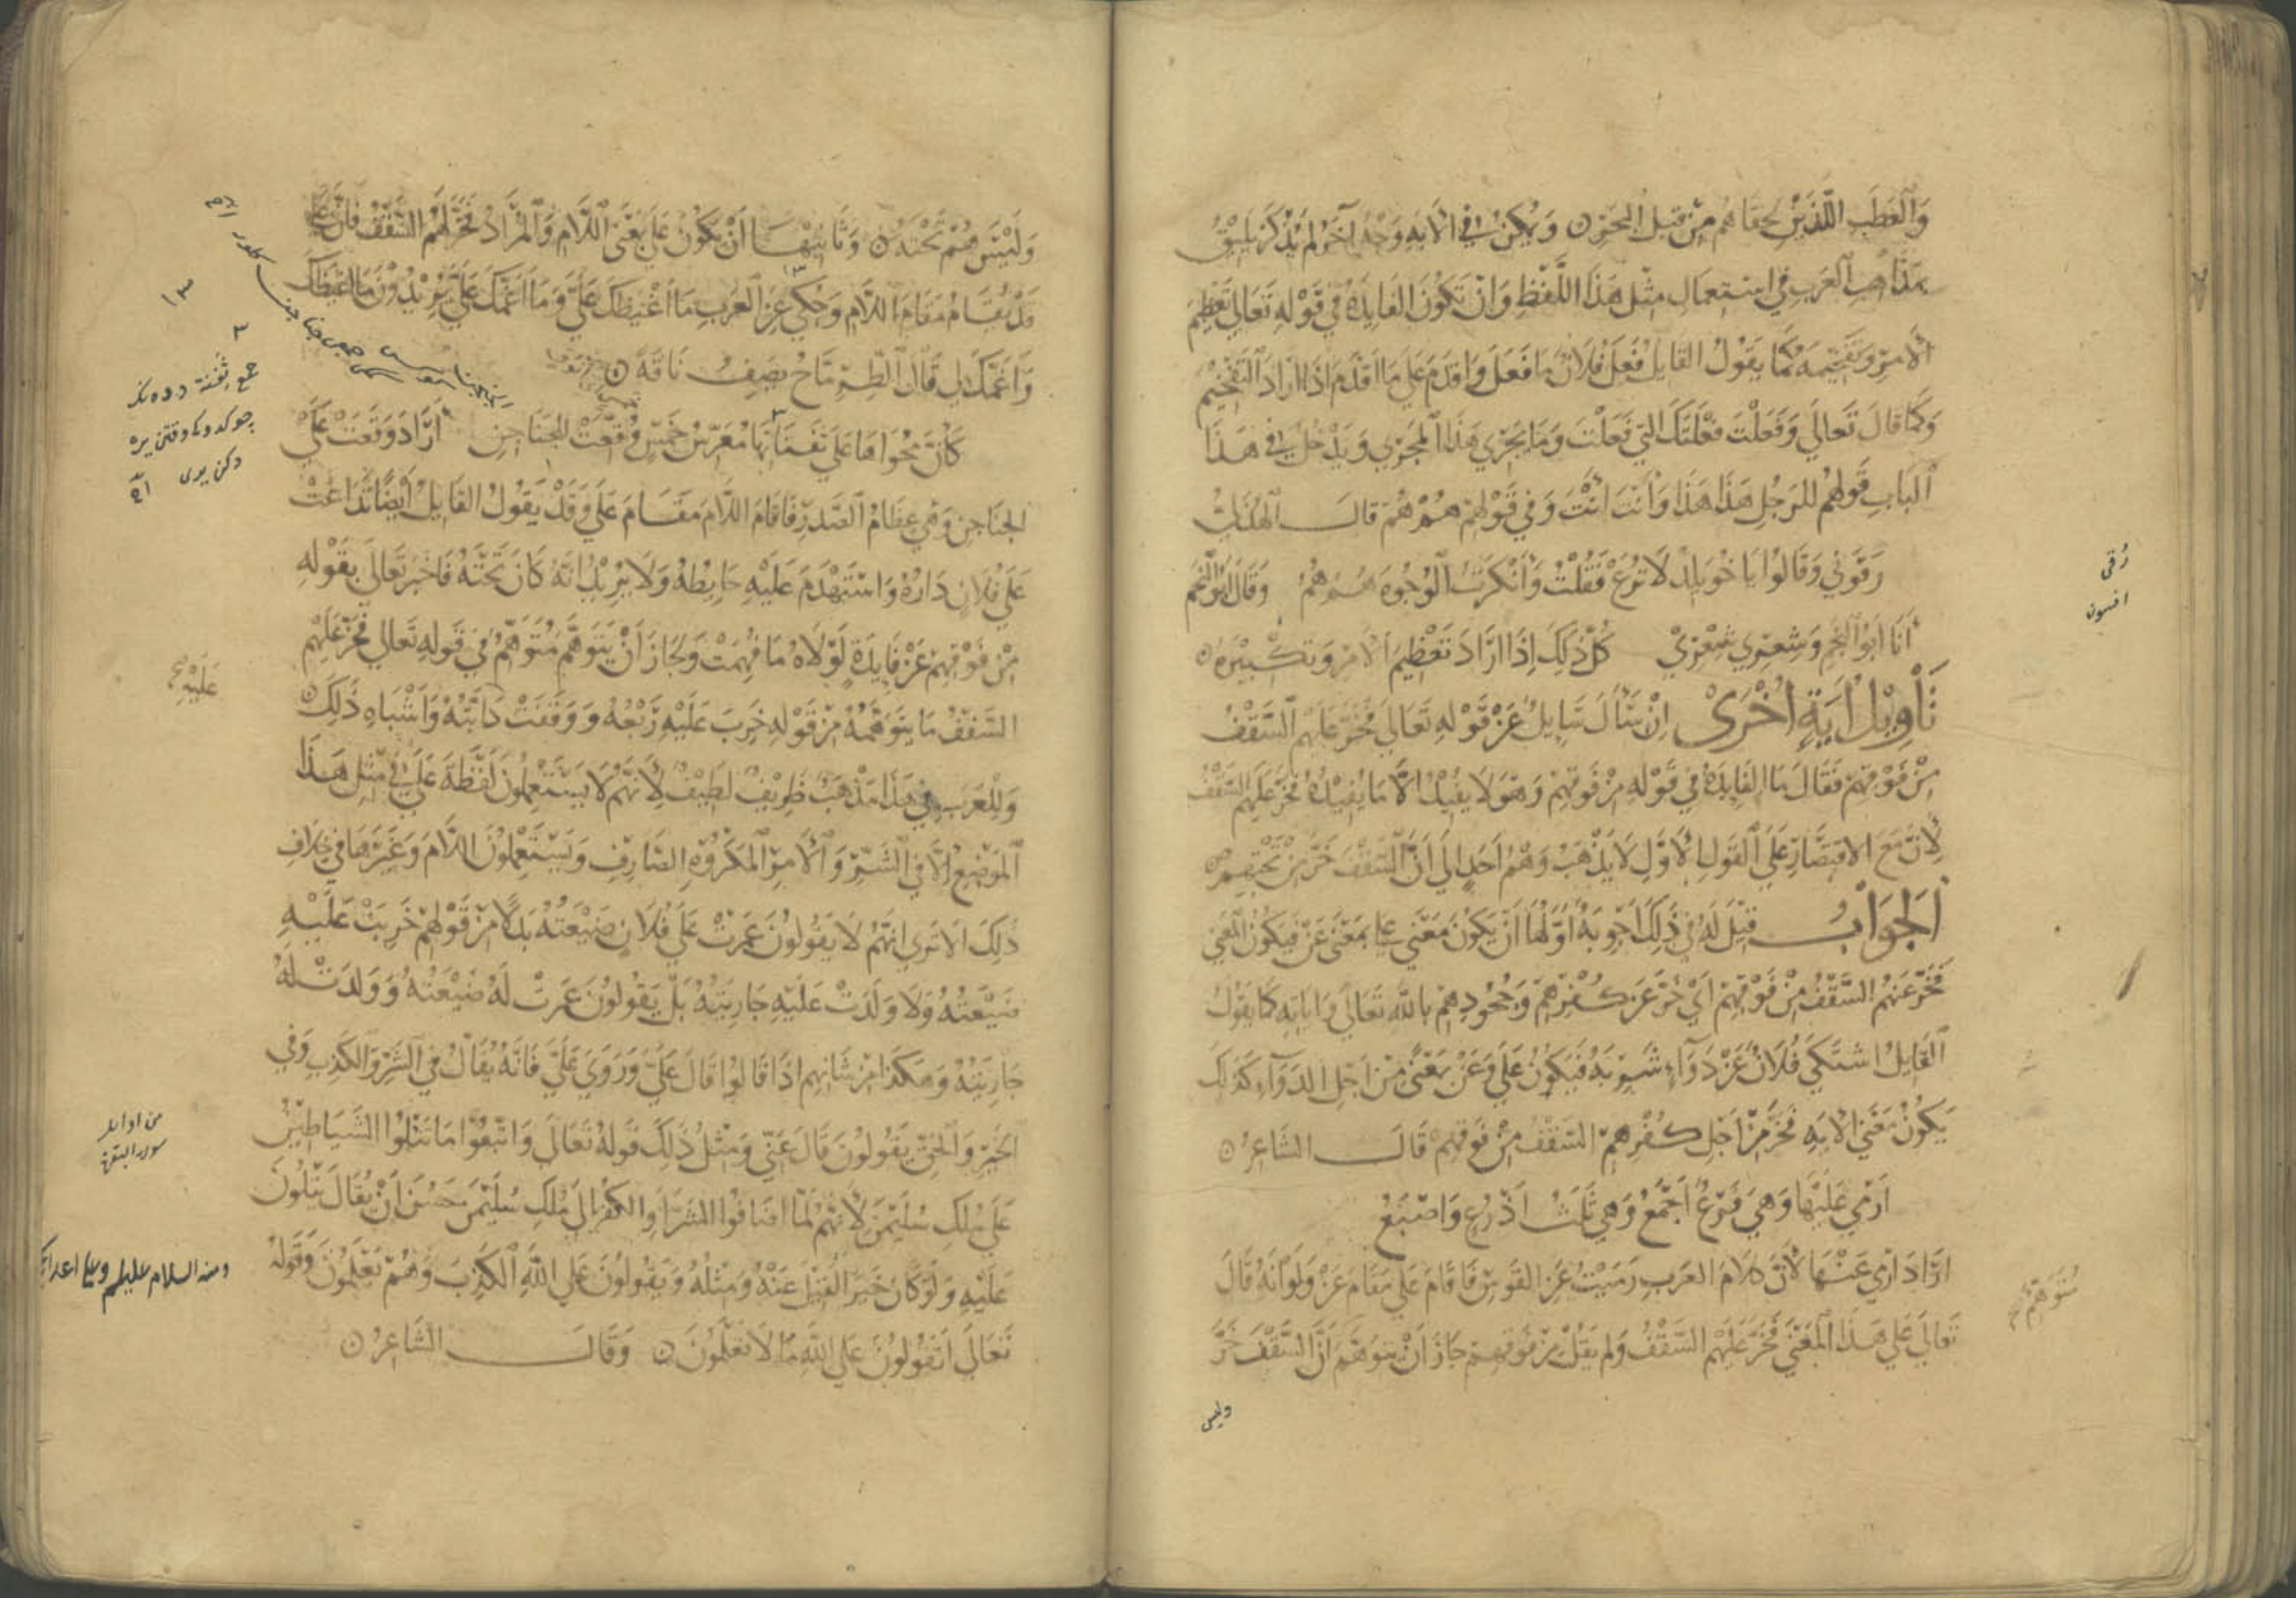 وَالعَطَبِ اللَّذَيْنِ لحقاهم مِنْ قِبَل البحرِ ۞ وَيمكن في الآيةِ وَجْه آخر لم يُذكر يَليقُ
بمذاهبِ العَرَبِ في استعمالِ مثل هَذَا اللَّفظِ وَانْ تكونَ الفايدة في قوله تَعَالى تعظيم
الأمرِ وتفخيمه كما يقولُ القايل فَعَلَ فُلانٌ مَا فَعَلَ وَاقدَمَ عَلى مَا اقدَمَ اذَا ارَادَ التفخيم
وَكما قالَ تَعالى وَفَعَلْتَ فَعْلَتَكَ التي فَعَلْتَ وَمَا يجري هَذَا المجرى وَيَدْخلُ في هذا
البابِ قولهم للرَجلِ هَذَا هَذَا وَأنتَ انْتَ وَفي قَوْلهِمْ هُمْ هُمْ قالــ الهُذليُّ
رَفَوني وَقالوُا يَا خُوَيلِدُ لَا تُرَعْ فَقُلْتُ وَأنْكَرتُ الوُجُوهَ هُمُ هُمُ وَقالَ ابُو النَّجم
أنَا أبُو النجم وَشِعْرِي شِعْري كُلُّ ذَلِكَ إذَا ارَادَ تَعْظِيمَ الأمرِ وَتكبيرَهُ ۞
تَأويل آيَةٍ أخْرَى إنْ سَألَ سَايِلٌ عَنْ قَوْلهِ تَعَالى فَخَرَّ عَلَيهِمُ السَّقْفُ
مِنْ فَوْقِهِمْ فَقَالَ مَا الفَايِدَةُ في قَوْلهِ مِنْ فَوقِهِمْ وَهوَ لا يفيدُ إلّا مَا يُفيدُهُ فَخَرَّ عَلَيهِم السَّقْفُ
لأنَّ مَعَ الاقتصَارِ عَلَى القولِ الأوَّلِ لَا يَذْهَبُ وَهْمُ أحَدٍ إلى أنَّ السَّقفَ خَرَّ مِنْ تَحْتِهِمْ
الجَوَابُ قيلَ لَهُ في ذَلِكَ أجْوِبَةٌ أوَّلها أنْ يَكُونَ مَعْنَى على بمعْنَى عَنْ فَيكونُ المعنى
فَخَرَّ عَنهُم السَّقْفُ مِنْ فَوْقِهِمْ أيْ خَرَّ عَن كُفْرِهِمْ وَجُحُودِهِمْ باللهِ تَعَالَى وَآيَاتِهِ كما يقولُ
القَايِلُ اشتَكى فُلَانٌ عَنْ دَوَاءٍ شَرِبَهُ فَيَكونُ عَلَى وَعَنْ بمَعْنى مِنْ اجْلِ الدَوَاءِ كَذلِكَ
يَكُونُ مَعْنَى الآيةِ فَخَرَّ مِنْ أجْلِ كُفْرِهِم السَّقْفُ مِنْ فَوْقِهِمْ قَالَــ الشاعِرُ ۞
أرْمي عَلَيْهَا وَهِيَ فَرْعٌ أجْمَعُ وَهِيَ ثَلَثُ أذْرُعٍ وَاصْبَعُ
ارَادَ ارْمي عَنْهَا لأنَّ كلَامَ العَرَبِ رَمَيْتُ عَنِ القَوسِ فَاقَامَ عَلى مَقَامَ عَنْ وَلَوْ أنَّهُ قالَ
تَعَالَى عَلى هَذَا المعْنى فَخَرَّ عَلَيهِمُ السَّقْفُ وَلم يَقُلْ مِنْ فَوقِهِمْ جَازَ أنْ يَتَوَهَّمَ أنَّ السَّقْفَ خَرَّ
وليس
رقى
افسون
مُتَوَهِّم
وَلَيْسَ هُمْ تحْتَهُ ۞ وَثانيهَا أنْ يَكُونَ عَلى بمَعْنَى اللَّامِ وَالمُرَاد فَخَرَّ لَهُمُ السَّقْفُ فَإنَّ عَلى
قَدْ يُقَامُ مَقَامَ اللَّام وَحُكيَ عَنِ العَرَبِ مَا أغْيَظَكَ عَلَيَّ وَمَا أغَمَّكَ عَلَيَّ يُرِيدُونَ مَا أغْيَظَكَ
وَأغَمَّكَ لي قَالَ الطِّرِمَّاحُ يَصِفُ نَاقَةً ۞
كَأنَّ مُخَوَّاهَا عَلَى ثَفِنَاتِهَا مُعَرَّسُ خَمْسٍ وَقَّعَتْ لِلجَنَاجِنِ ارَادَ وَقَعَتْ عَلَى
الجنَاجِن وَهي عِظَامُ الصَّدرِ فَاقَامَ اللَّامَ مَقَامَ عَلَى وَقَدْ يَقُولُ القَايلُ ايْضًا تَدَاعَتْ
عَلَى فُلَانٍ دَارُهُ وَاسْتَهْدَمَ عَلَيْهِ حَايِطُهُ وَلَا يُرِيدُ انَّهُ كَانَ تَحْتَهُ فَاخبَرَ تَعَالَى بِقَوْلِهِ
مِنْ فَوْقِهِمْ عَنْ فَايِدَةٍ لَوْلَاهُ مَا فُهِمَتْ وَلَجَازَ أنْ يَتَوَهَّمَ مُتَوَهِّمٌ في قَولهِ تَعَالى فَخَرَّ عَلَيهِمُ
السَّقْفُ مَا يَتَوَهَّمُهُ مِنْ قَوْلهِ خَرِبَ عَلَيْهِ رَبْعُهُ وَوَقَفَتْ دَابَّتُهُ وَأشْبَاهِ ذَلِكَ ۞
وَلِلعَرَبِ في هَذَا مَذْهَبٌ ظَرِيفٌ لَطِيفٌ لِأنَّهُمْ لَا يَسْتَعْمِلُونَ لَفْظَةَ عَلَى في مِثْلِ هَذَا
المَوْضِعِ إلَّا في الشَّرِّ وَالأمرِ المَكرُوهِ الضَّارِّ وَيَسْتَعْمِلُونَ اللَّامَ وَغَيْرَهَا في خِلَافِ
ذَلِكَ ألَا تَرى أنَّهُمْ لَا يَقُولُونَ عَمرَتْ عَلَى فُلَانٍ ضَيْعَتُهُ بَدَلًا مِنْ قَوْلِهِمْ خَرِبَتْ عَلَيْهِ
ضَيْعَتُهُ وَلَا وَلَدَتْ عَلَيْهِ جَارِيَتُهُ بَلْ يَقُولُونَ عَمرَتْ لَهُ ضَيْعَتُهُ وَوَلَدَتْ لَهُ
جَارِيَتُهُ وَهكَذَا مِنْ شَانِهِم إذَا قَالُوا قَالَ عَلَيَّ وَرَوَى عَلَيَّ فَانَّهُ يُقَالُ في الشَّرِّ وَالكَذِبِ وَفي
الخَيرِ وَالحَقِّ يَقُولُونَ قَالَ عَنِّي وَمِثْلُ ذَلِكَ قَولُهُ تَعَالَى وَاتَّبَعُوا مَا تَتْلُوا الشَّيَاطِينُ
عَلَى مُلْكِ سُلَيْمَنَ لأنَّهُمْ لَمَّا اضَافُوا الشَّرَّ وَالكُفْرَ إلَى مُلْكِ سُلَيْمَنَ حَسُنَ أنْ يُقَالَ يَتْلُونَ
عَلَيْهِ وَلَوْ كَانَ خَيرًا لَقِيْلَ عَنْهُ وَمِثْلُهُ وَيَقُولُونَ عَلَى اللهِ الكَذِبَ وَهُمْ يَعْلَمُونَ وَقَولُهُ
تَعَالَى أتَقُولُونَ عَلَى اللهِ مَا لَا تَعْلَمُونَ ۞ وَقَالَــ الشَّاعِرُ ۞
جمع ثفنة
عَلَيْهِم
من اوايل
سورة البقرة
ومنه السلام عليكم وعلى